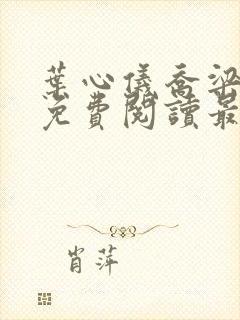 葉心儀喬梁
免費閱讀最
肖萍